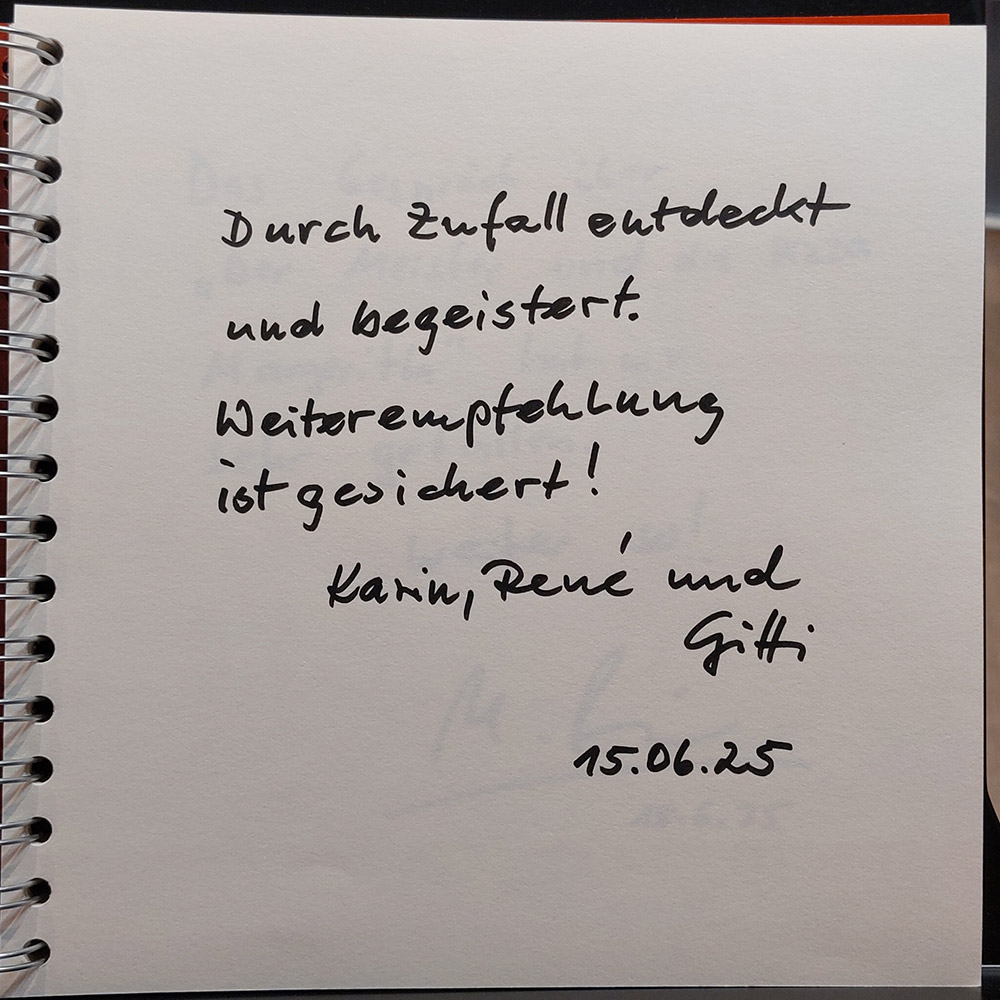 Durch Zufall entdeckt
und begeistert.
Weiterempfehlung
ist gesichert!
Karin, René und
Gitti
15.06.25